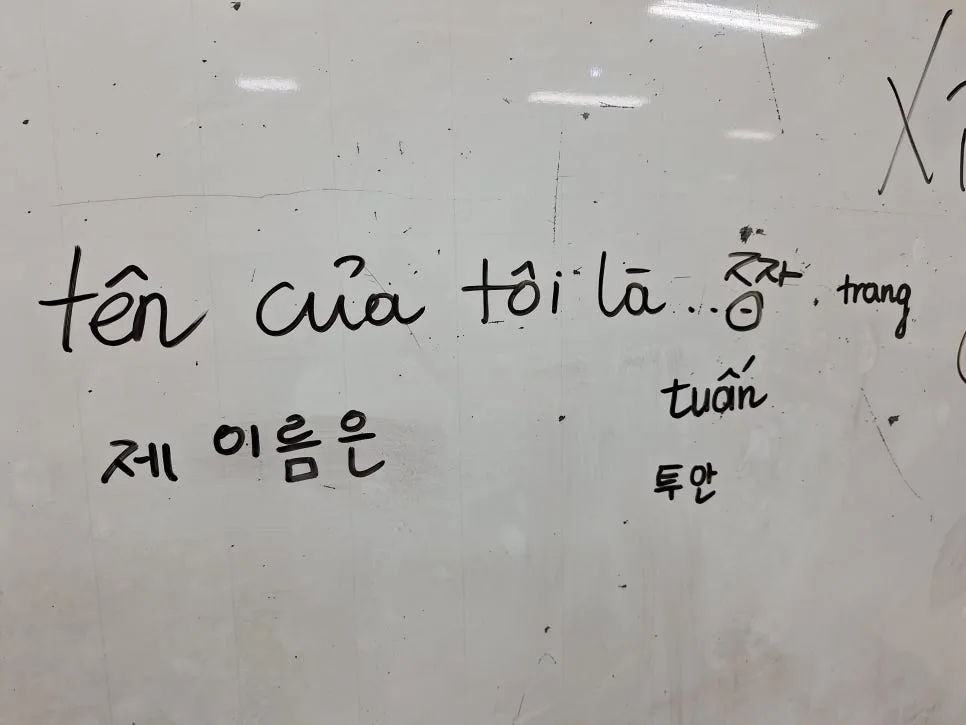 tên của tôi là... 쯔장. trang
tuấn
제 이름은
투안